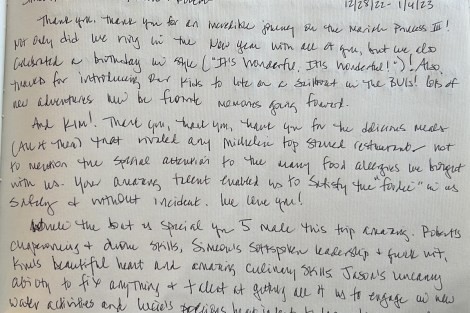 12/28/22 - 1/4/23
Thank you, thank you for an incredible journey on the Marich Princess III!
Not only did we ring in the New Year with all of you, but we also
celebrated a birthday in style ("It's wonderful, It's wonderful!"). Also,
thanks for introducing our kids to life on a sailboat in the BVIs! Lots of
new adventures will be favorite memories going forward.
And Kim! Thank you, thank you, thank you for the delicious meals
(All of them) that rivaled any Michelin top starred restaurant - not
to mention the special attention to the many food allergies we brought
with us. Your amazing talent enabled us to satisfy the "foodie" in us
safely & without incident. We love you!
While the boat is special you 5 made this trip amazing. Robert's
chaperoning & drone skills, Simeon's softspoken leadership & quick wit,
Kim's beautiful heart and amazing culinary skills, Jason's uncanny
ability to fix anything & talent at getting all of us to engage in new
water activities and Lucie's